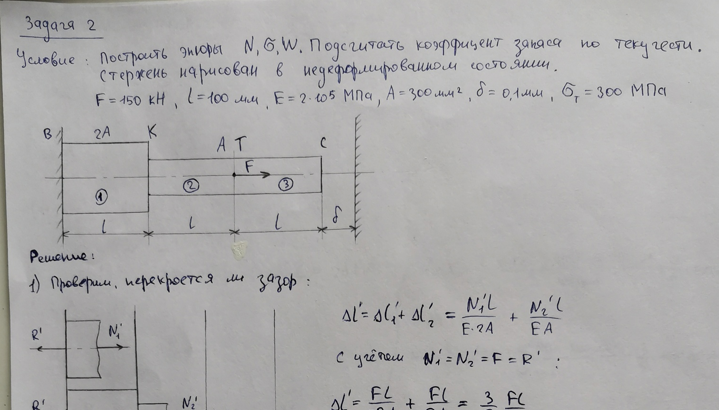 Задача 2
Условие: Построить эпюры N, σ, W. Подсчитать коэффицент запаса по текучести.
Стержень нарисован в недеформированном состоянии.
F = 150 кН, l = 100 мм, E = 2·10⁵ МПа, A = 300 мм², δ = 0,1 мм, σт = 300 МПа
B 2A K A T C
F
① ② ③
l l l δ
Решение:
1) Проверим, перекроется ли зазор:
Δl' = Δl₁' + Δl₂' = N₁'l / E·2A + N₂'l / EA
R' N₁'
с учётом N₁' = N₂' = F = R' :
R' N₂'
Δl' = Fl + Fl = 3 Fl